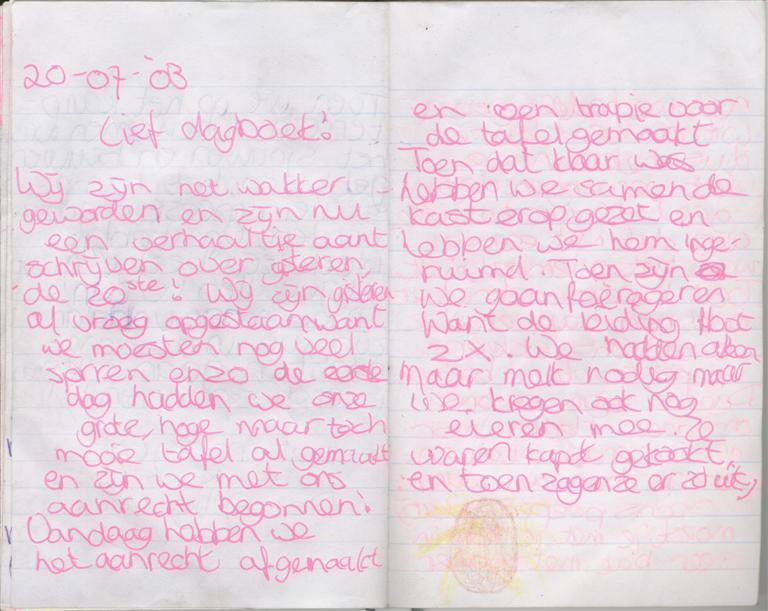 20-07-'03
Lief dagboek!
Wij zijn net wakker
geworden en zijn nu
een verhaaltje aant
schrijven over gisteren
de 20ste! Wij zijn gisteren
al vroeg opgestaan want
we moesten nog veel
sjorren enzo de eerste
dag hadden we onze
grote, hoge maar toch
mooie tafel al gemaakt
en zijn we met ons
aanrecht begonnen!
Vandaag hebben we
het aanrecht afgemaakt
en een trapje voor
de tafel gemaakt
Toen dat klaar was
hebben we samen de
kast erop gezet en
hebben we hem inge-
ruimd. Toen zijn
we gaan foerageren
Want de leiding Hoot
2x. We hadden alleen
maar melk nodig maar
we kregen ook nog
eieren mee. Ze
waren kapot gekookt,
en toen zagen ze er zo uit,